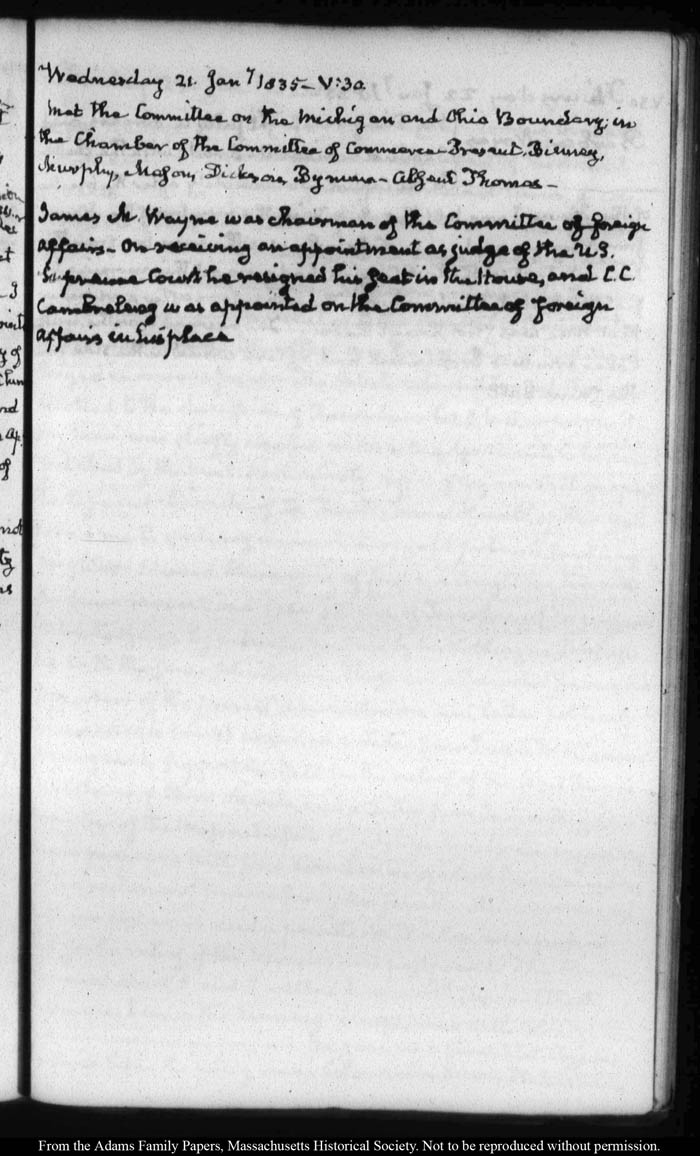 Wednesday 21. Jany 1835 — V:30.
Met the Committee on the Michigan and Ohio Boundary; in
the Chamber of the Committee of Commerce — Present, Binney,
Murphy, Mason, Dickson, Bynum — Absent Thomas —
James M. Wayne was chairman of the Committee of foreign
affairs — On receiving an appointment as judge of the U.S.
Supreme Court he resigned his seat in the House, and C.C.
Cambreleng was appointed on the Committee of foreign
affairs in his place
From the Adams Family Papers, Massachusetts Historical Society. Not to be reproduced without permission.